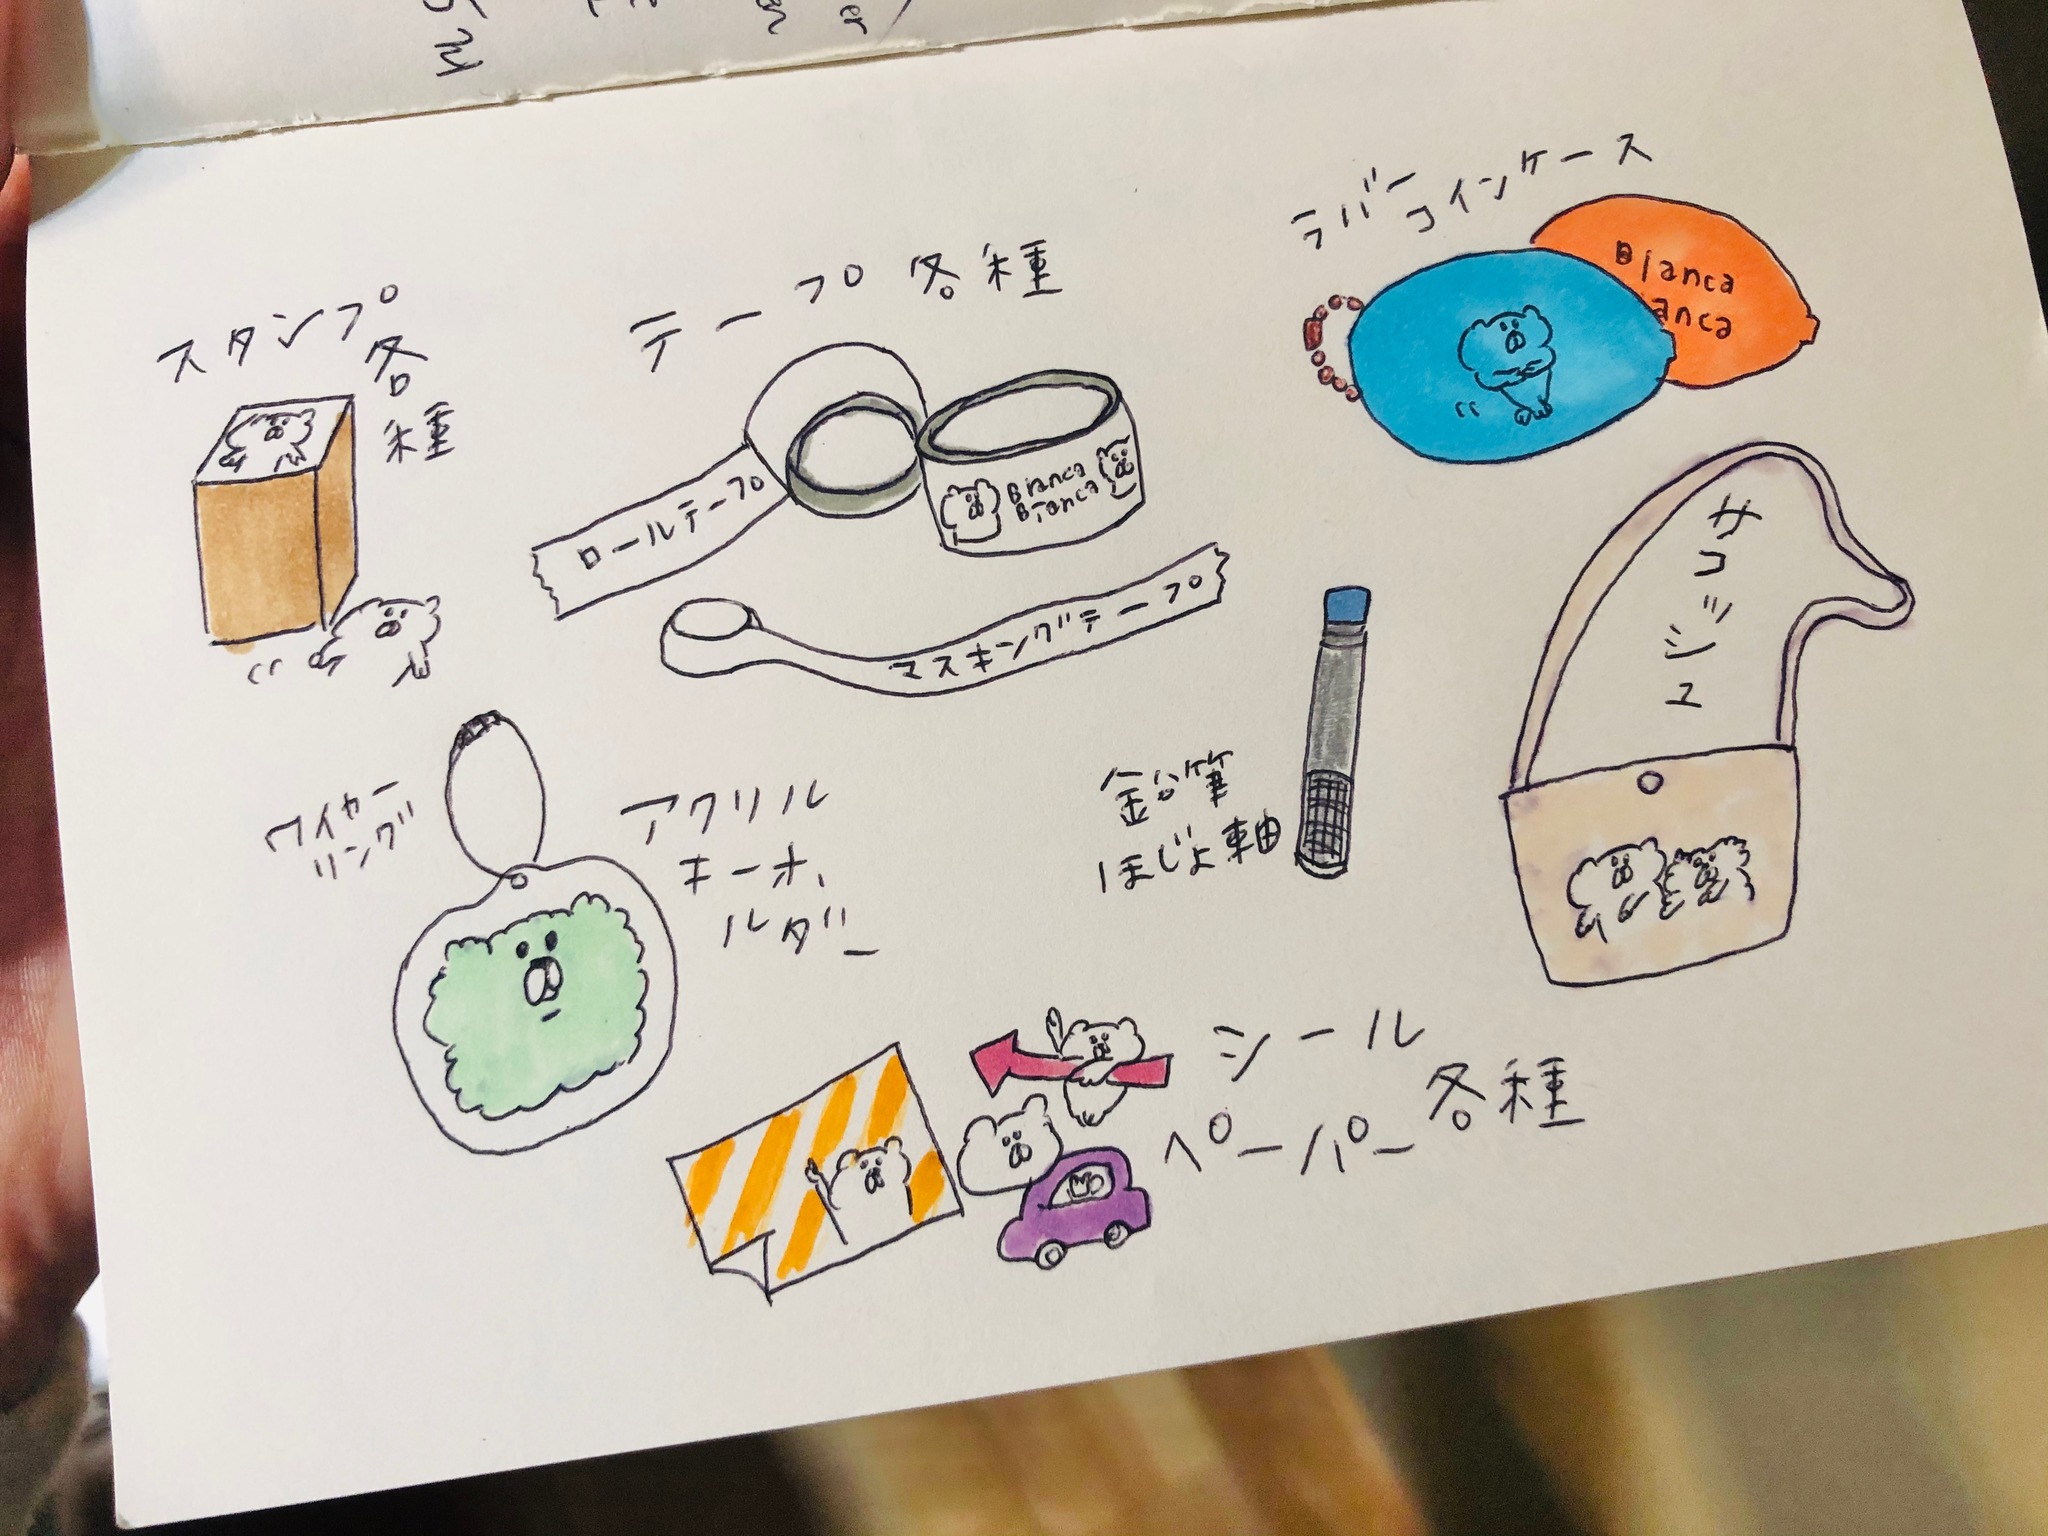 スタンプ
各
種
テープ各種
ロールテープ
Bianca
Bianca
マスキングテープ
ラバー
コインケース
Bianca
ianca
サコッシュ
ワイヤー
リング
アクリル
キーホ
ルダー
鉛筆
ほじょ軸
シール
ペーパー各種